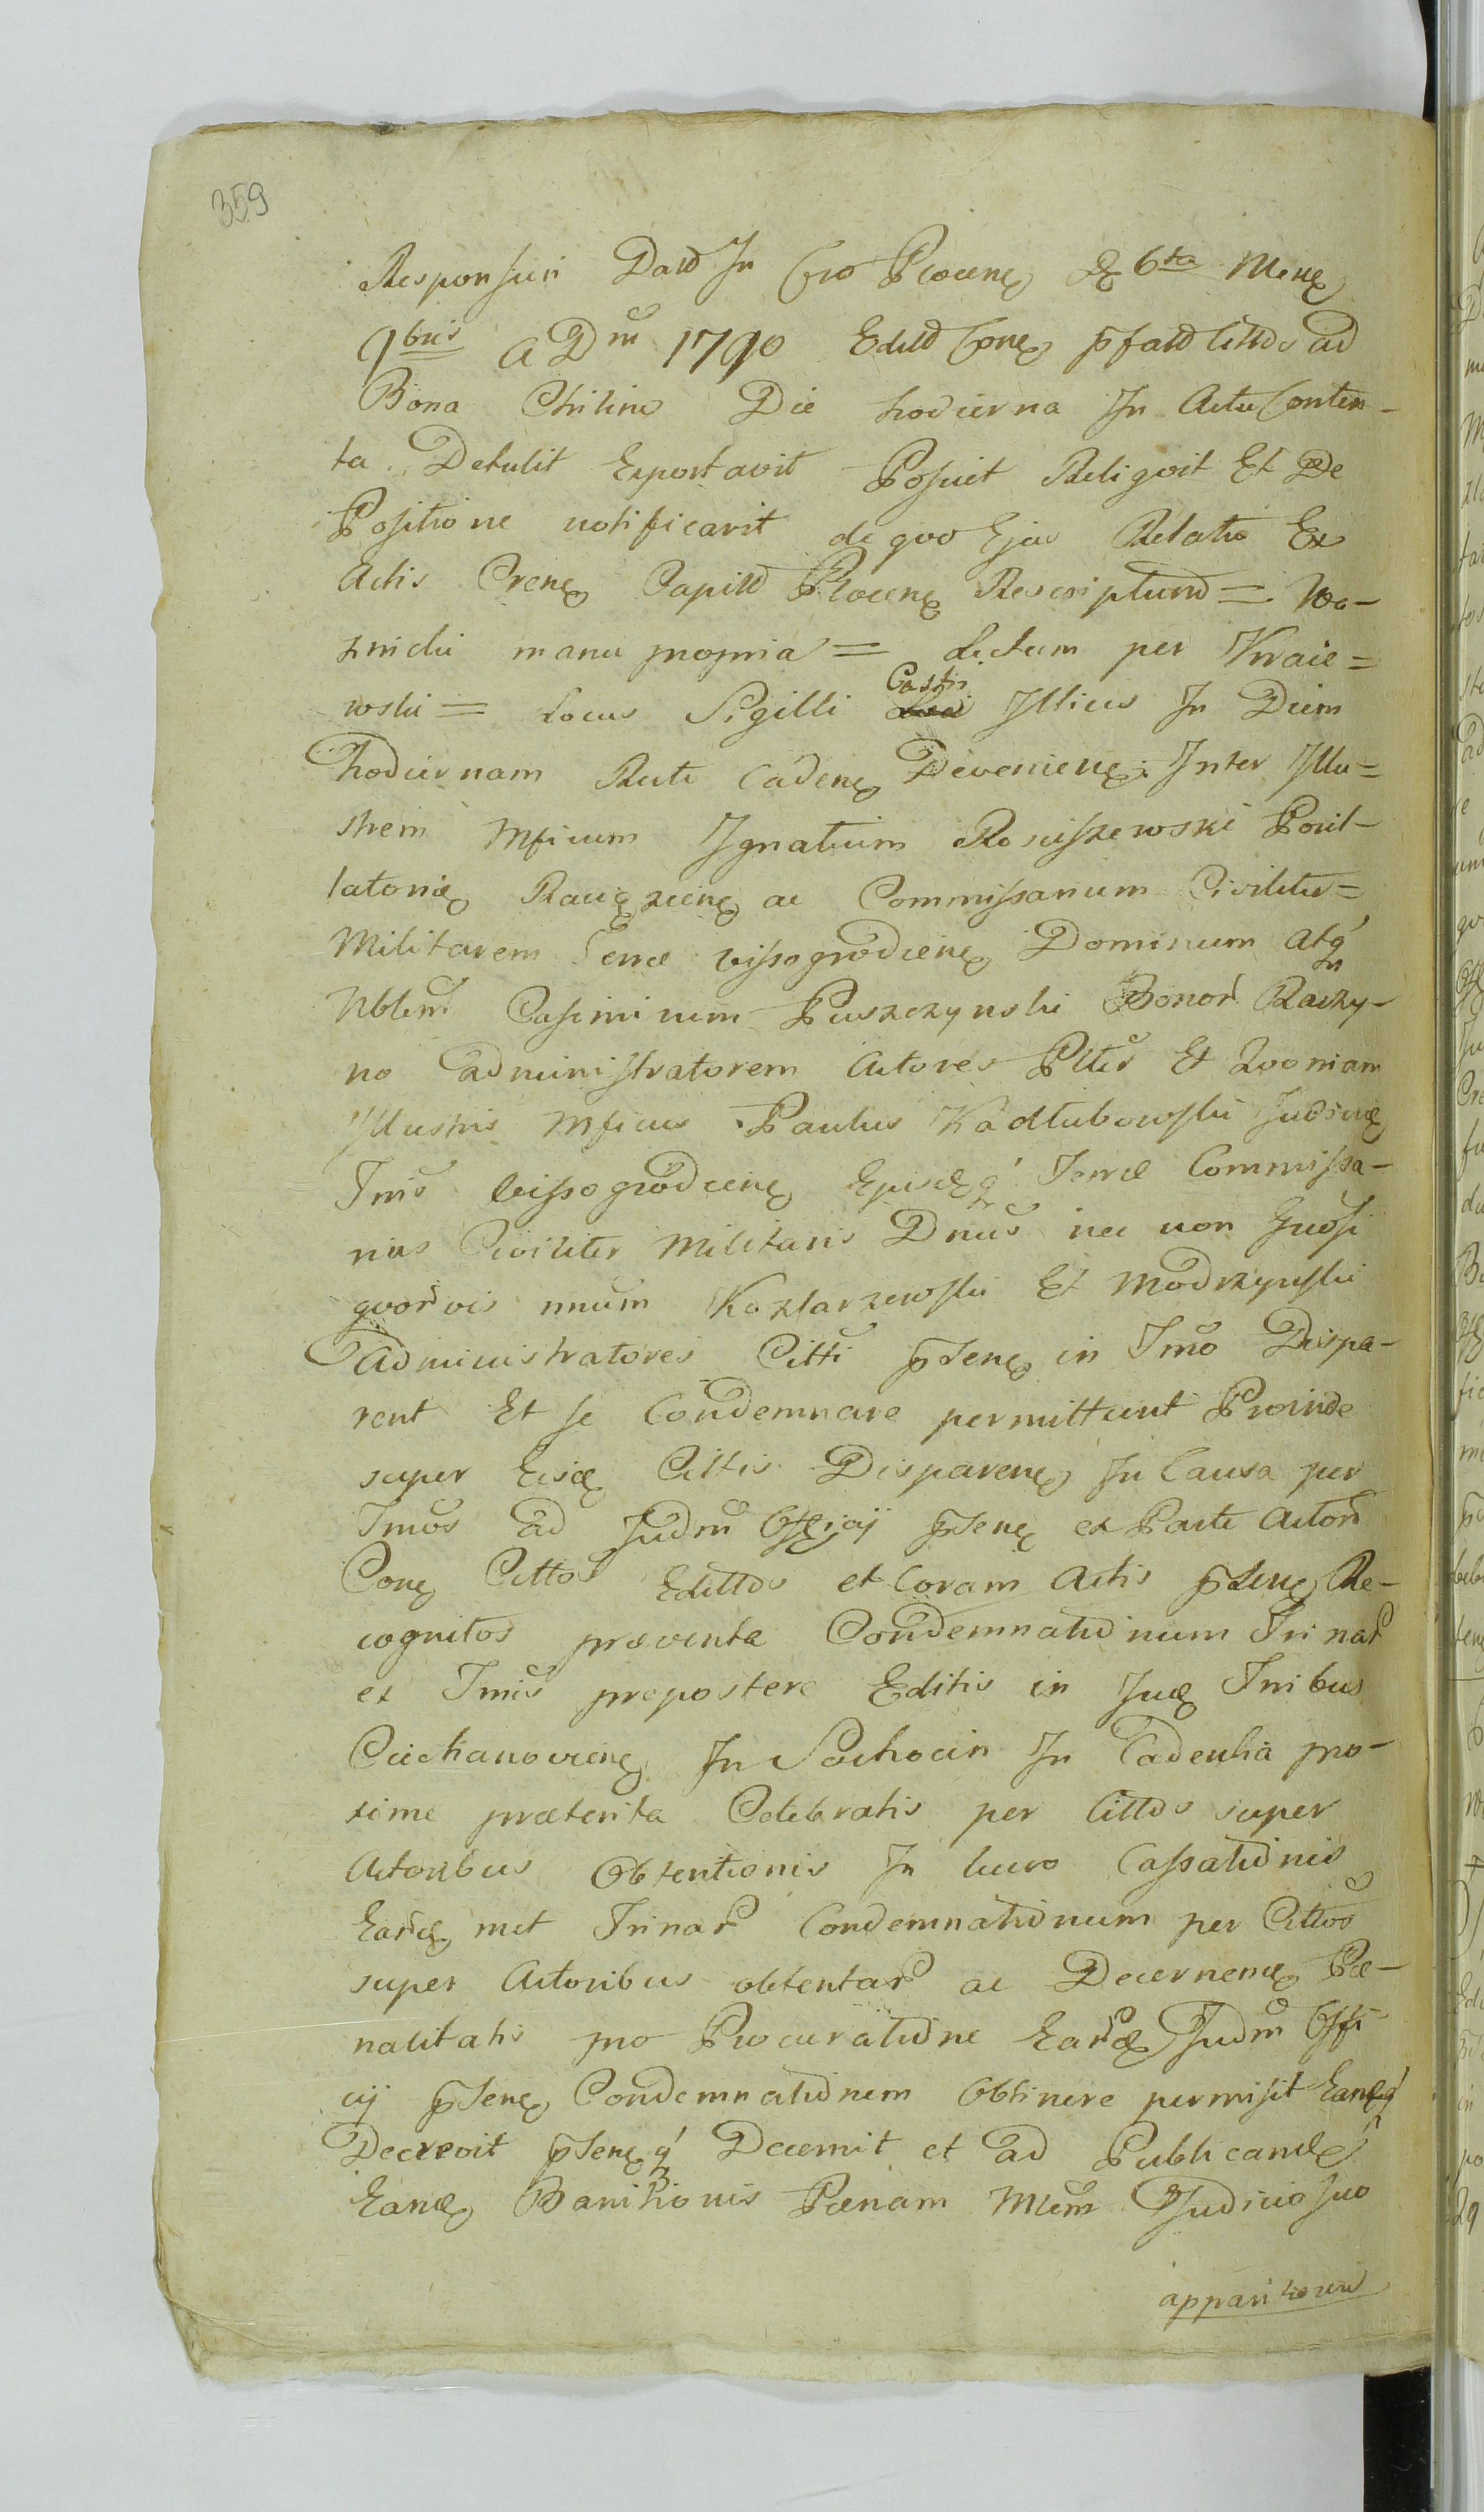 359
Responsuri Datd In Cro Plocenę dę 6ta Mensę
9bris A Dni 1790 Editd Conę pfatd Cittos ad
Bona Chilino Die hodierna In Actu Conten-
ta Detulit Exportavit Posuit Reliqvit Et De
Positione notificavit de qvo Ejus Relatio Ex
Actis Crenę Capitd Plocenę Rescriptum = Wo-
znicki manu propria = Lectum per Kraie=
wski = Locus Sigilli Castri Illius In Diem
hodiernam Recte Cadenę Devenienę Inter Illu=
strem Mficum Ignatium Rosciszewski
latoris Raciązienę ac Commissarium Civiliter=
Militarem Terræ Vissogrodienę Dominum atq
Nblem Casimirum Puszczynski Bonor Raczy-
no administratorem Actores Plter Et Qvoniam
Illustris Mficus Paulus Kadłubowski Judicię
Tris Vissogrodienę Ejusdęq Terræ Commissa-
rius Civiliter Militaris Dnus nec non Gnosi
qvorvis nnum Kozlarzewski Et Modrzynski
Administratores Citti pstenę in Tmo Dispa-
rent Et se Condemnare permittunt Proinde
super Eisdę Cittis Disparenę In Causa per
Tmos ad Judm Officij pstenę ex Parte Actor
Conę Cittos Edittos et Coram Actis pstenę Re-
cognitos præventa Condemnationum Trinar
ex Tmis prepostere Editis in Judę Tribus
Ciechanovienę In Sochocin In Cadentia pro-
xime præterita Celebratis per Cittos super
Actoribus Obtentionis In lucro Cassationis
Eardę met Trinar Condemnationum per Cittos
super Actoribus obtentar ac Decernenę Pæ-
nalitatis pro Procuratione Eardę Judm Offi-
cij pstenę Condemnationem Obtinere permisit Eandęq
Decrevit pstenęq Decernit et ad Publicandę
Eandę Banitionis Pænam Mlem Judicio suo
apparitorem